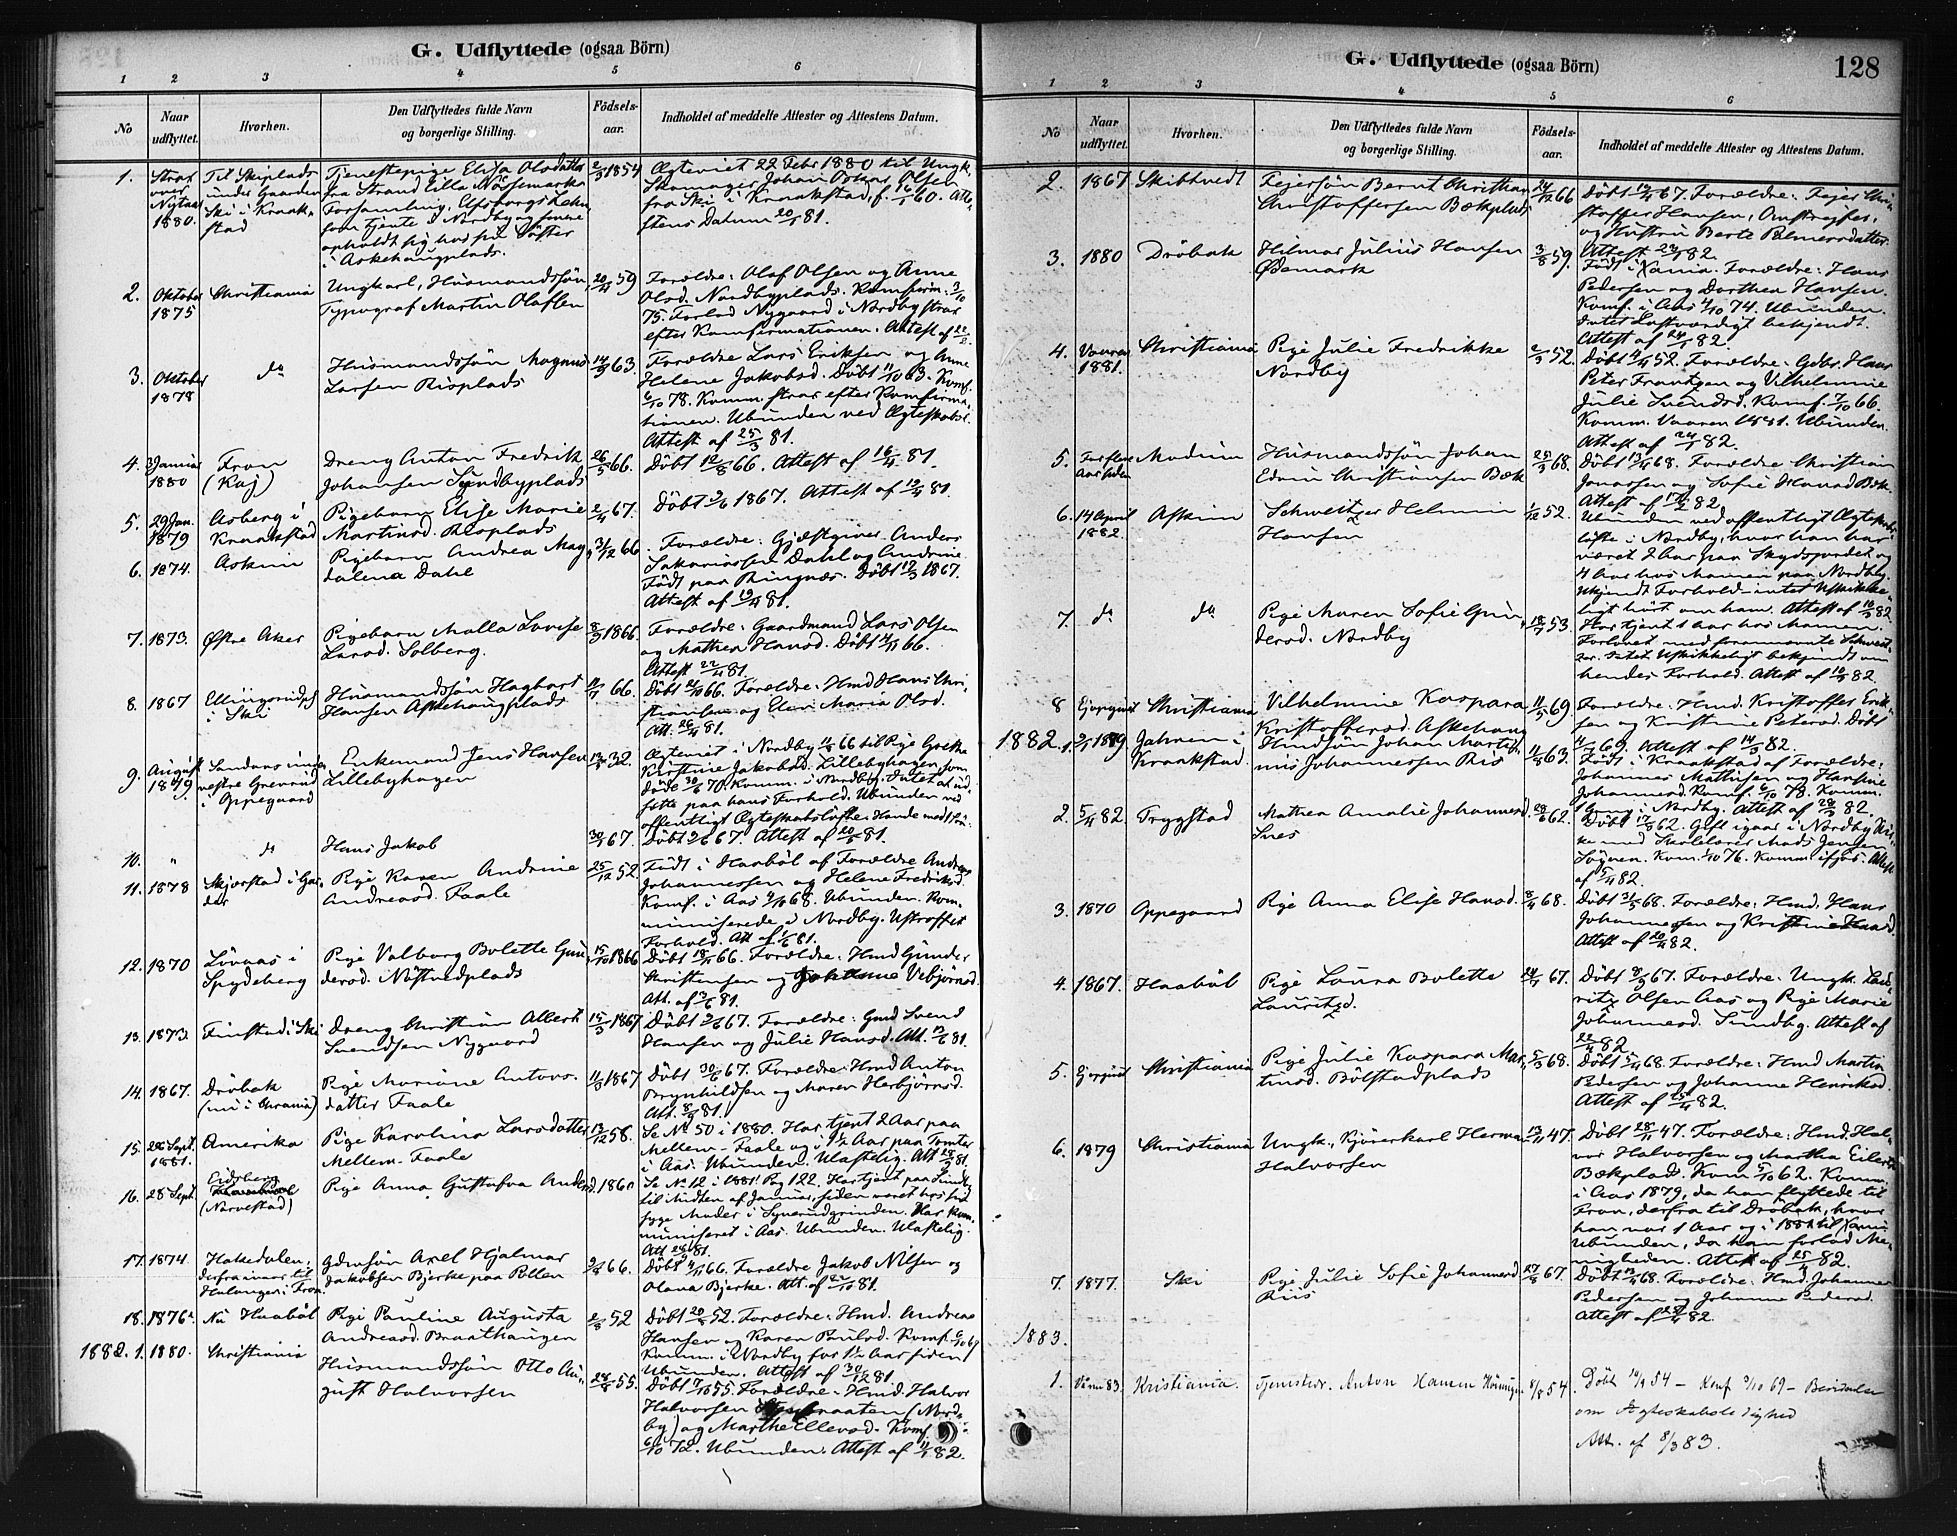 G. Udflyttede (ogsaa Börn)
1 2 3 4 5 6
No
Naar udflyttet.
Hvorhen.
Den Udflyttedes fulde Navn
og borgerlige Stilling.
Födsels-
aar.
Indholdet af meddelte Attester og Attestens Datum.
1. Strax over Nytaar 1880.
Til Skiplads
under Gaarden
Ski i Kraak-
stad
Tjenestepige Elisa Olsdatter
fra Strand Lilla
Forsamling,
som tjente i Nordby og senere
opholdt sig hos sin Söster
i Askehaugplads.
1854
Ægteviet 22 Febr 1880 til Ungk.
Johan Oskar Olsen
fra Ski i Kraakstad, f. 16/1 60. Atte-
stens Datum 20/1 81.
2. Oktober 1875
Christiania
Ungkarl, Husmandssön,
Typograf Martin Olafsen
20/4 59
Forældre: Olaf Olsen og Anne
Olsd. Nordbyplads. Konfirm. 3/10
75. Forlod Nygaard i Nordby strax
efter Konfirmationen. Attest af
3. Oktober 1878
do
Husmandssön Magnus
Larsen Risplads
14/9 63.
Forældre Lars Eriksen og Anne
Helene Jakobsd. Döbt 11/10 63. Konf.
6/10 78. Komm. strax efter Konfirma-
tionen. Ubunden ved Ægteskabsl.
Attest af 25/3 81.
4. Januar 1880
Fron
(Kaj)
Dreng Anton Fredrik
Johansen Sundbyplads
26/5 66.
Döbt 12/8 66. Attest af 16/4 81.
5. 29 Jan. 1879
Asberg i
Kraakstad
Pigebarn Elise Marie
Martinsd. Risplads
2/4 67.
Döbt 9/6 1867. Attest af 19/4 81.
6. 1874.
Askim
Pigebarn Andrea Mag-
dalena Dahl
31/12 66
Forældre: Gjæstgiver Anders
Sakariassen Dahl og Andrine
Födt paa Ringnæs. Döbt 17/3 1867.
Attest af 19/4 81.
7. 1873.
Østre Aker
Pigebarn Malla Lovise
Larsd. Solberg.
8/9 1866.
Forældre: Gaardmand Lars Olsen
og Mathea Hansd. Döbt 4/11 66.
Attest 22/4 81.
8. 1867
Ellingsrudpl.
i Ski
Husmandssön Hagbart
Hansen Askehaugplads
66.
Döbt 66. Forældre: Hmd Hans Chri-
stiansen og Elen Maria Olsd.
Att. 26/4 81.
9. August 1879
Sandaas under
vestre Grevrud
i Oppegaard
Enkemand Jens Hansen
Lillebyhagen
32.
Ægteviet i Nordby 66 til Pige Grethe
Kirstine Jakobsd. Lillebyhagen som
döde 30/6 70. Komm. i Nordby. Intet at ud-
sætte paa hans Forhold. Ubunden ved
offentligt Ægteskabslöfte.
10. "
do
Hans Jakob
30/4 67.
Döbt 67. Attest af 20/5 81.
11. 1878
Skjerstad i
Pige Karen Andrine
Andreasd. Faale
25/12 52
Födt i Haaböl af Forældre Andreas
Johannessen og Helene Fredriksd.
Konf. i Aas 68. Ubunden. Kom-
muniserede i Nordby. Ustraffet
Forhold. Att af 1/6 81.
12. 1870
Lövaas i
Spydeberg
Pige Valborg Bolette Gun-
dersd. Nöstvedplads
15/10 1866
Döbt 18/11 66. Forældre: Hmd Gunder
Kristensen og Johanne Vebjörnsd.
Att. af 81.
13. 1873.
Finstad i Ski
Dreng Christian Albert
Svendsen Nygaard
15/3 1867
Döbt 9/6 67. Forældre: Gmd Svend
Hansen og Julie Hansd. Att. 81.
14. 1867.
Dröbak
(nu i Chrania)
Pige Mariane Antons-
datter Faale
1867
Döbt 30/6 67. Forældre: Hmd Anton
Brynhildsen og Maren Herbjörnsd.
Att. 8/9 81.
15. 28 Sept. 1881.
Amerika
Pige Karolina Larsdatter
Mellem-Faale
13/12 58.
Se No 50 i 1880. Har tjent 2 Aar paa
Mellem-Faale og i 1½ Aar paa Tomter
i Aas. Ubunden. Ulastelig. Att 28/9 81.
16. 28 Sept.
Eidsberg
(Narvestad)
Pige Anna Gustafva Andersd.
1860
Se No 12 i 1881 Pag 122. Har tjent paa Sundby
til Midten af Januar, siden været hos sin
syge Moder i Synerudgrinden. Har kom-
muniseret i Aas. Ubunden. Ulastelig.
Att 28/9 81.
17. 1874
Hakedalen;
derfra til
i Fron
Gdmsön Axel Hjalmar
Jakobsen Bjerke paa Pollen
66.
Döbt 4/11 66. Forældre Jakob Nilsen og
Olava Bjerke. Att. af 81.
18. 1876
Nu Haaböl
Pige Pauline Augusta
Andreasd. Braathaugen
2/8 52
Döbt 20/8 52. Forældre: Hmd. Andreas
Hansen og Karen Paulsd. Konf. 6/10 67
Komm. i Nordby for 1½ Aar siden.
Ubunden. Attest af 30/12 81.
1882. 1. 1880.
Christiania
Husmandssön Otto Au-
gust Halvorsen
28/8 55.
Döbt 7/10 55. Forældre: Hmd. Halvor
Halvorsen (Nord-
by) og Marthe Ellevsd. Konf.
6/10 72. Ubunden. Attest af 82.
G. Udflyttede (ogsaa Börn)
128
1 2 3 4 5 6
No
Naar
udflyttet.
Hvorhen.
Den Udflyttedes fulde Navn
og borgerlige Stilling.
Födsels-
aar.
Indholdet af meddelte Attester og Attestens Datum.
2. 1867
Skibtvedt
Fejersön Bernt Christian
Christoffersen Bækplads
24/12 66
Döbt 67. Forældre: Fejer Chri-
stoffer Hansen,
og Hustru Berte Palmersdatter.
Attest 82.
3. 1880
Dröbak
Hilmar Julius Hansen
Ødemark
3/8 59.
Födt i Xania. Forældre: Hans
Pedersen og Dorthea Hansen.
Konf. i Aas 4/10 74. Ubunden.
Intet Lastværdigt bekjendt.
Attest af 82.
4. Vaaren 1881.
Christiania
Pige Julie Fredrikke
Nordby
52.
Döbt 52. Forældre: Gdbr. Hans
Peter Frantzen og Vilhelmine
Julie Svendsd. Konf. 7/10 66.
Komm. Vaaren 1881. Ubunden.
Attest af 24/1 82.
5. For flere Aar siden
Modum
Husmandssön Johan
Edvin Christiansen Bæk
68.
Döbt 13/4 68. Forældre Christian
Jonassen og Sofie Hansd Bæk.
Attest af 17/2 82.
6. 14 April 1882.
Askim
Schweitzer Helmin
Hansen
1/12 52.
Ubunden ved offentligt Ægteskabs-
löfte i Nordby, hvor han har
været 2 Aar paa Skydsjordet og
4 Aar hos Mamen paa Nordby.
Ukjendt Forhold - intet Uskikke-
ligt hört om ham. Attest af 82
7. do
do
Pige Maren Sofie Gun-
dersd. Nordby
53.
Har tjent 1 Aar hos Mamen.
Forlovet med forannævnte Schweit-
zer. Intet Uskikkeligt bekjendt om
hendes Forhold. Attest af 82.
8
Christiania
Vilhelmine Kaspara
Kristoffersd. Askehaug
69.
Forældre: Hmd. Kristoffer Erik-
sen og Kristine Petersd. Döbt
69. Attest af 14/3 82.
1882. 1. 1879
Jahren i
Kraakstad.
Hmdssön Johan Marti-
nus Johannessen Riis
63.
Födt i Kraakstad af Forældre:
Johannes Mathisen og Hansine
Johannesd. Konf. 6/10 78. Komm.
1 Gang i Nordby. Attest af 28/3 82.
2. 5/4 82
Trygstad
Mathea Amalie Johannesd.
Snes
62.
Döbt 17/8 62. Gift igaar i Nordby Kir-
ke med Karl Mads Jensen
Konf. 76. Komm. ifjor. Attest
af 5/4 82.
3. 1870
Oppegaard
Pige Anna Elise Hansd.
8/4 68.
Döbt 31/5 68. Forældre: Hmd. Hans
Johannessen og Kristine Hansd.
Attest af 20/4 82.
4. 1867.
Haaböl
Pige Laura Bolette
Lauritzd.
67.
Döbt 67. Forældre: Ungk. Lau-
ritz Olsen Aas og Pige Marie
Johannesd. Sundby. Attest af
22/4 82
5.
Christiania
Pige Julie Kaspara Mar-
tinsd. Bölstadplads
68.
Döbt 68. Forældre: Hmd Martin
Pedersen og Johanne Henriksd.
Attest af 82.
6. 1879
Christiania
Ungk., Kjörerkarl Herman
Halvorsen
47.
Döbt 28/11 47. Forældre: Hmd. Hal-
vor Halvorsen og Martha Eilertsd
Bækplads. Konf. 5/10 62. Komm.
i Aas 1879, da han flyttede til
Fron, derfra til Dröbak, hvor
han var 1 Aar og i 1881 til Xania
Ubunden, da han forlod Me-
nigheden. Attest af 25/4 82.
7. 1877.
Ski
Pige Julie Sofie Johannesd
Riis
67.
Döbt 68. Forældre: Hmd. Johannes
Pedersen og Johanne Pedersd.
Attest af 82.
1883.
1.
Kristiania.
Tjenestedr. Anton Hansen
8/8 54
Döbt 54 - Konf 3/10 69 -
om Ægteskabsledighed
Att. af 8/3 83.